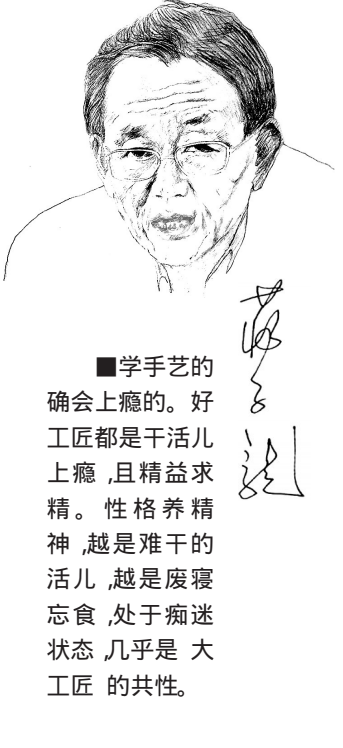 蒋子龙
■学手艺的
确会上瘾的。好
工匠都是干活儿
上瘾,且精益求
精。性格养精
神,越是难干的
活儿,越是废寝
忘食,处于痴迷
状态,几乎是 大
工匠 的共性。